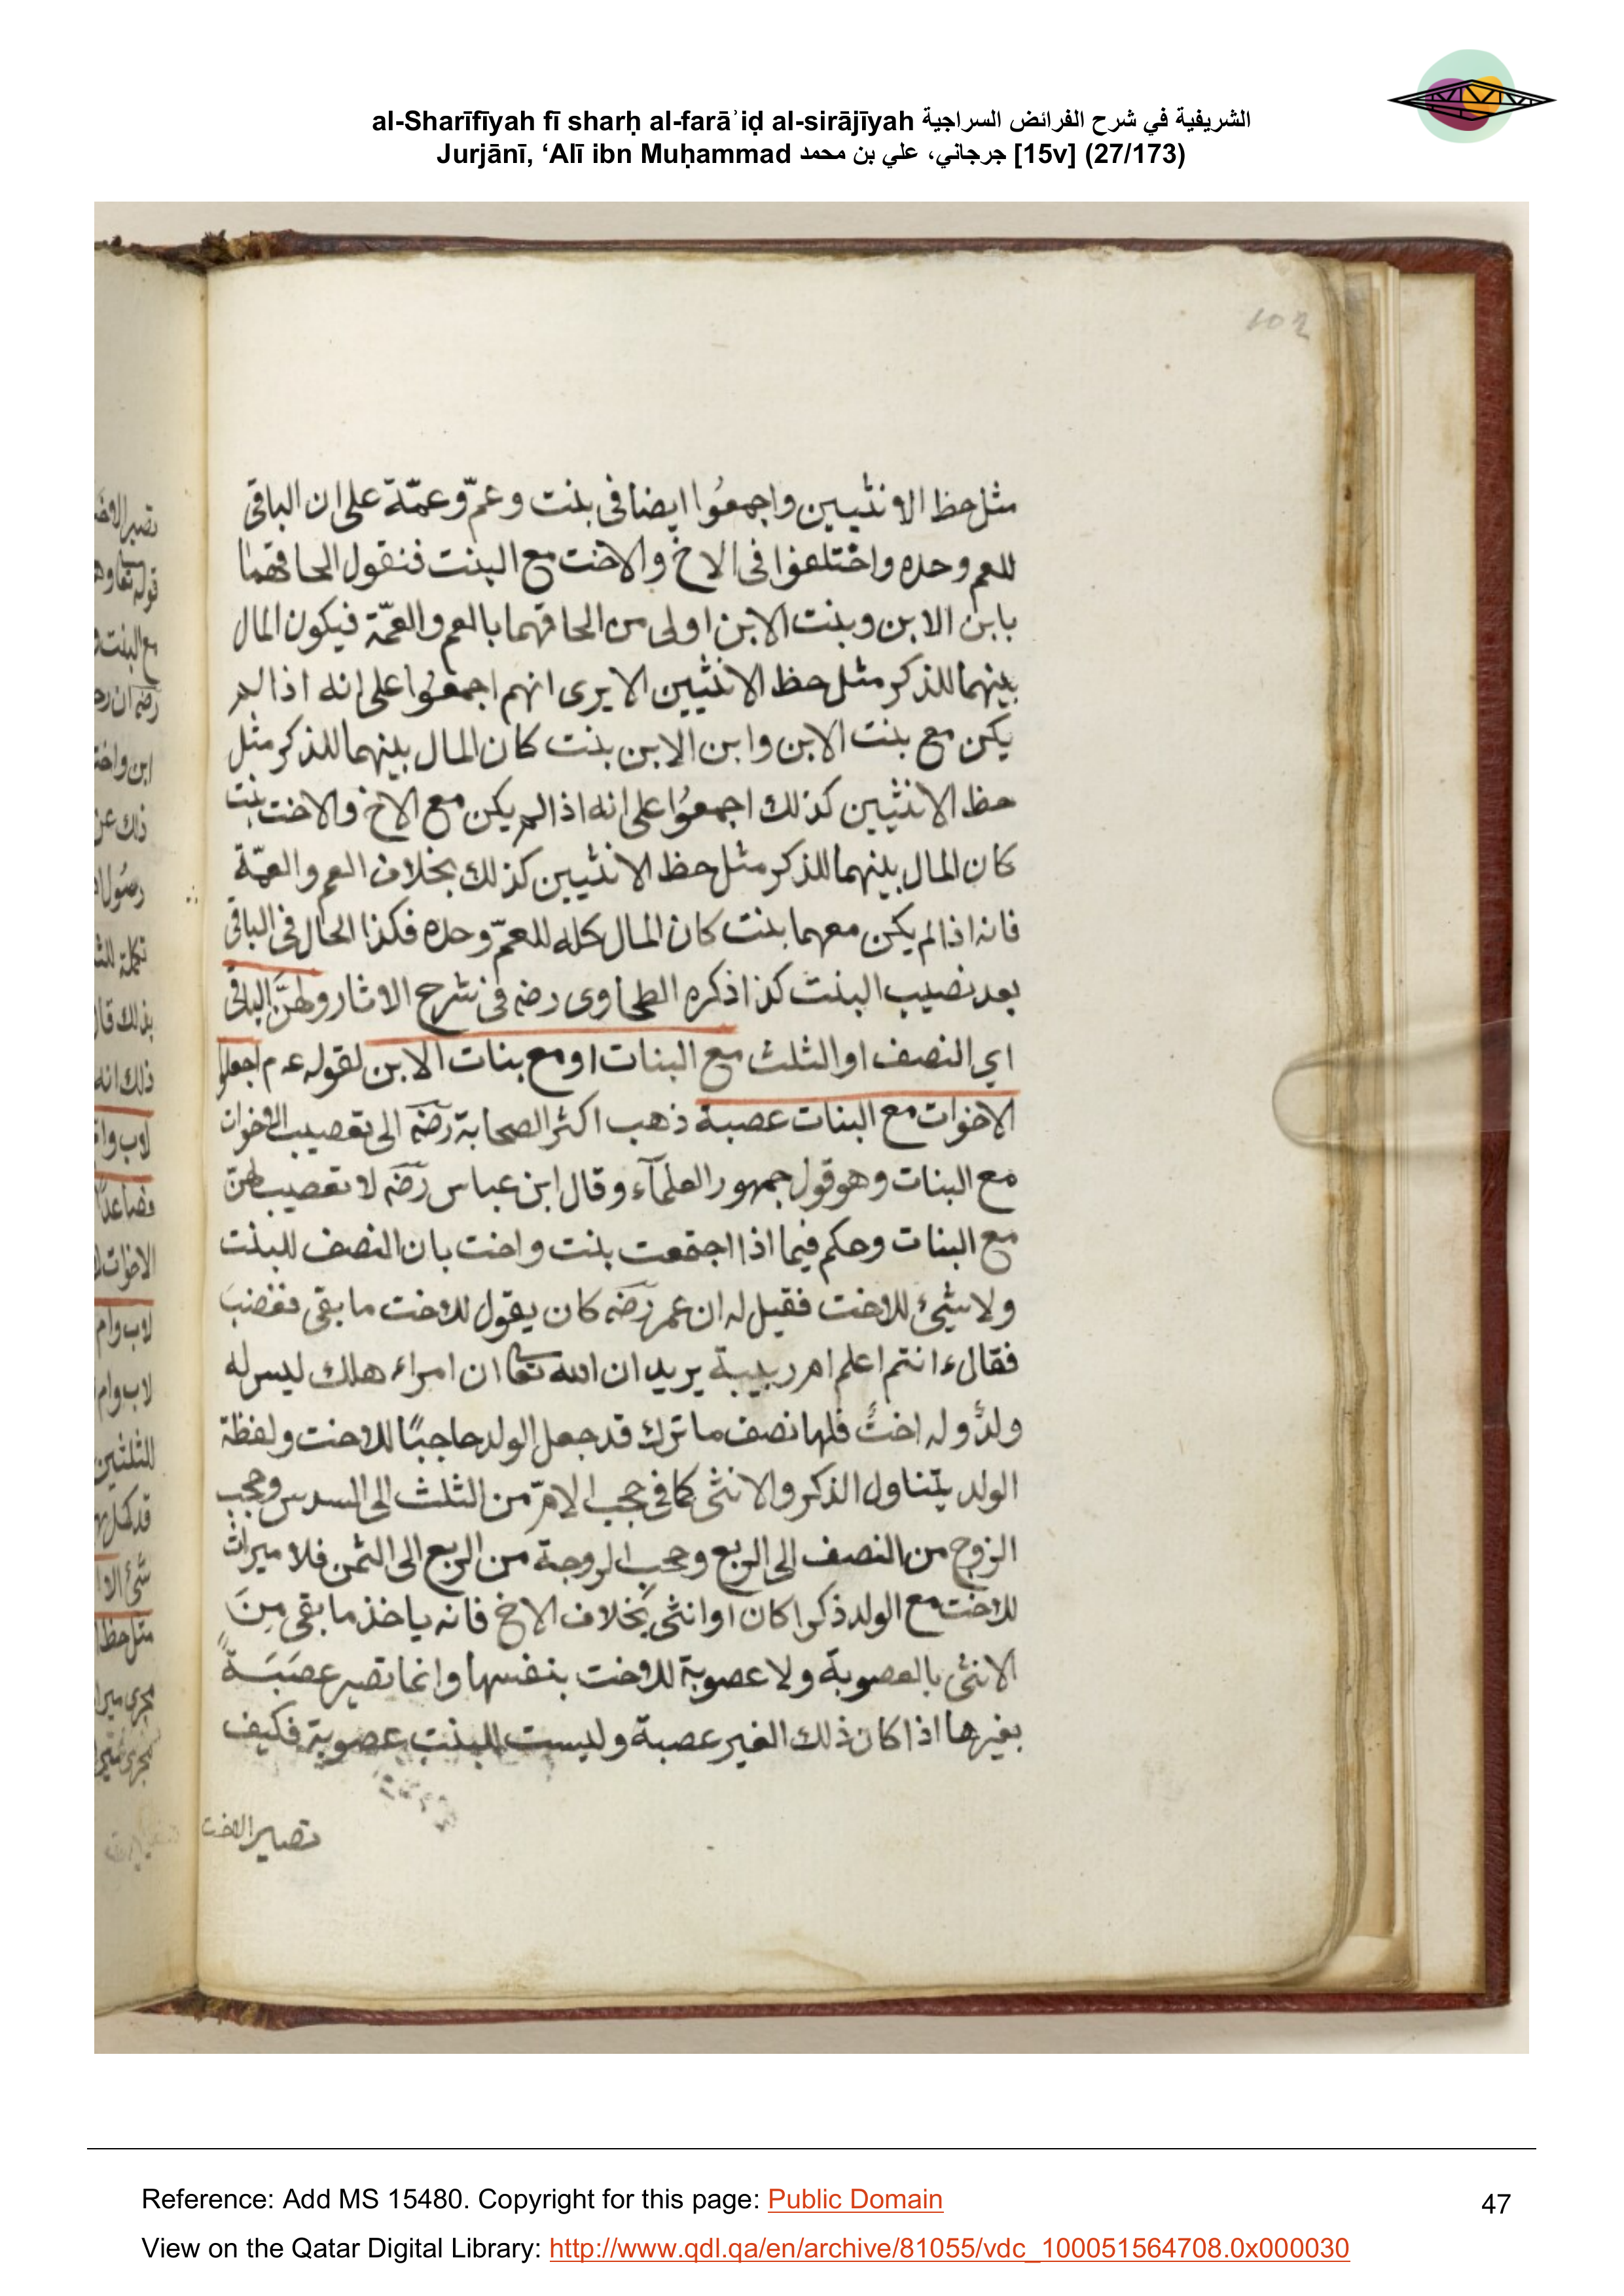 al-Sharīfīyah fī sharḥ al-farāʾiḍ al-sirājīyah الشريفية في شرح الفرائض السراجية
Jurjānī, ‘Alī ibn Muḥammad جرجاني، علي بن محمد [15v] (27/173)
102
مثل حظ الانثيين واجمعُوا ايضا فى بنت وعمّ وعمّة على ان الباقى
للعم وحده واختلفوا فى الاخ والاخت مع البنت فنقول الحاقهما
بابن الابن وبنت الابن اولى من الحاقهما بالعم والعمّة فيكون المال
بينهما للذكر مثل حظ الانثيين الا يرى انهم اجمعُوا على انه اذا لم
يكن مع بنت الابن وابن الابن بنت كان المال بينهما للذكر مثل
حظ الانثيين كذلك اجمعُوا على انه اذا لم يكن مع الاخ والاخت بنت
كان المال بينهما للذكر مثل حظ الانثيين كذلك بخلاف العم والعمّة
فانه اذا لم يكن معهما بنت كان المال كله للعمّ وحده فكذا الحال فى الباقى
بعد نصيب البنت كذا ذكره الطحاوى رضه فى شرح الاثار ولهنَّ الباقى
اي النصف او الثلث مع البنات او مع بنات الابن لقوله عم اجعلوا
الاخوات مع البنات عصبة ذهب اكثر الصحابة رضه الى تعصيب الاخوات
مع البنات وهو قول جمهور العلمآء وقال ابن عباس رضه لا تعصيب لهنّ
مع البنات وحكم فيما اذا اجتمعت بنت واخت بان النصف للبنت
ولا شيئ للاخت فقيل له ان عمر رضه كان يقول للاخت ما بقى فغضب
فقال ءانتم اعلم ام ربيبة يريد ان الله تعا ان امراء هلك ليس له
ولدٌ وله اختٌ فلها نصف ما ترك قد جعل الولد حاجبًا للاخت ولفظة
الولد يتناول الذكر والانثى كما فى حجب الامّ من الثلث الى السدس وحجب
الزوج من النصف الى الربع وحجب الزوجة من الربع الى الثمن فلا ميراث
للاخت مع الولد ذكرا كان او انثى بخلاف الاخ فانه ياخذ ما بقى مِنَ
الانثى بالعصوبة ولا عصوبة للاخت بنفسها وانما تصير عصَبَةً
بغيرها اذا كان ذلك الغير عصبة وليست للبنت عصوبة فكيف
تصير الاخت
Reference: Add MS 15480. Copyright for this page: Public Domain
47
View on the Qatar Digital Library: http://www.qdl.qa/en/archive/81055/vdc_100051564708.0x000030